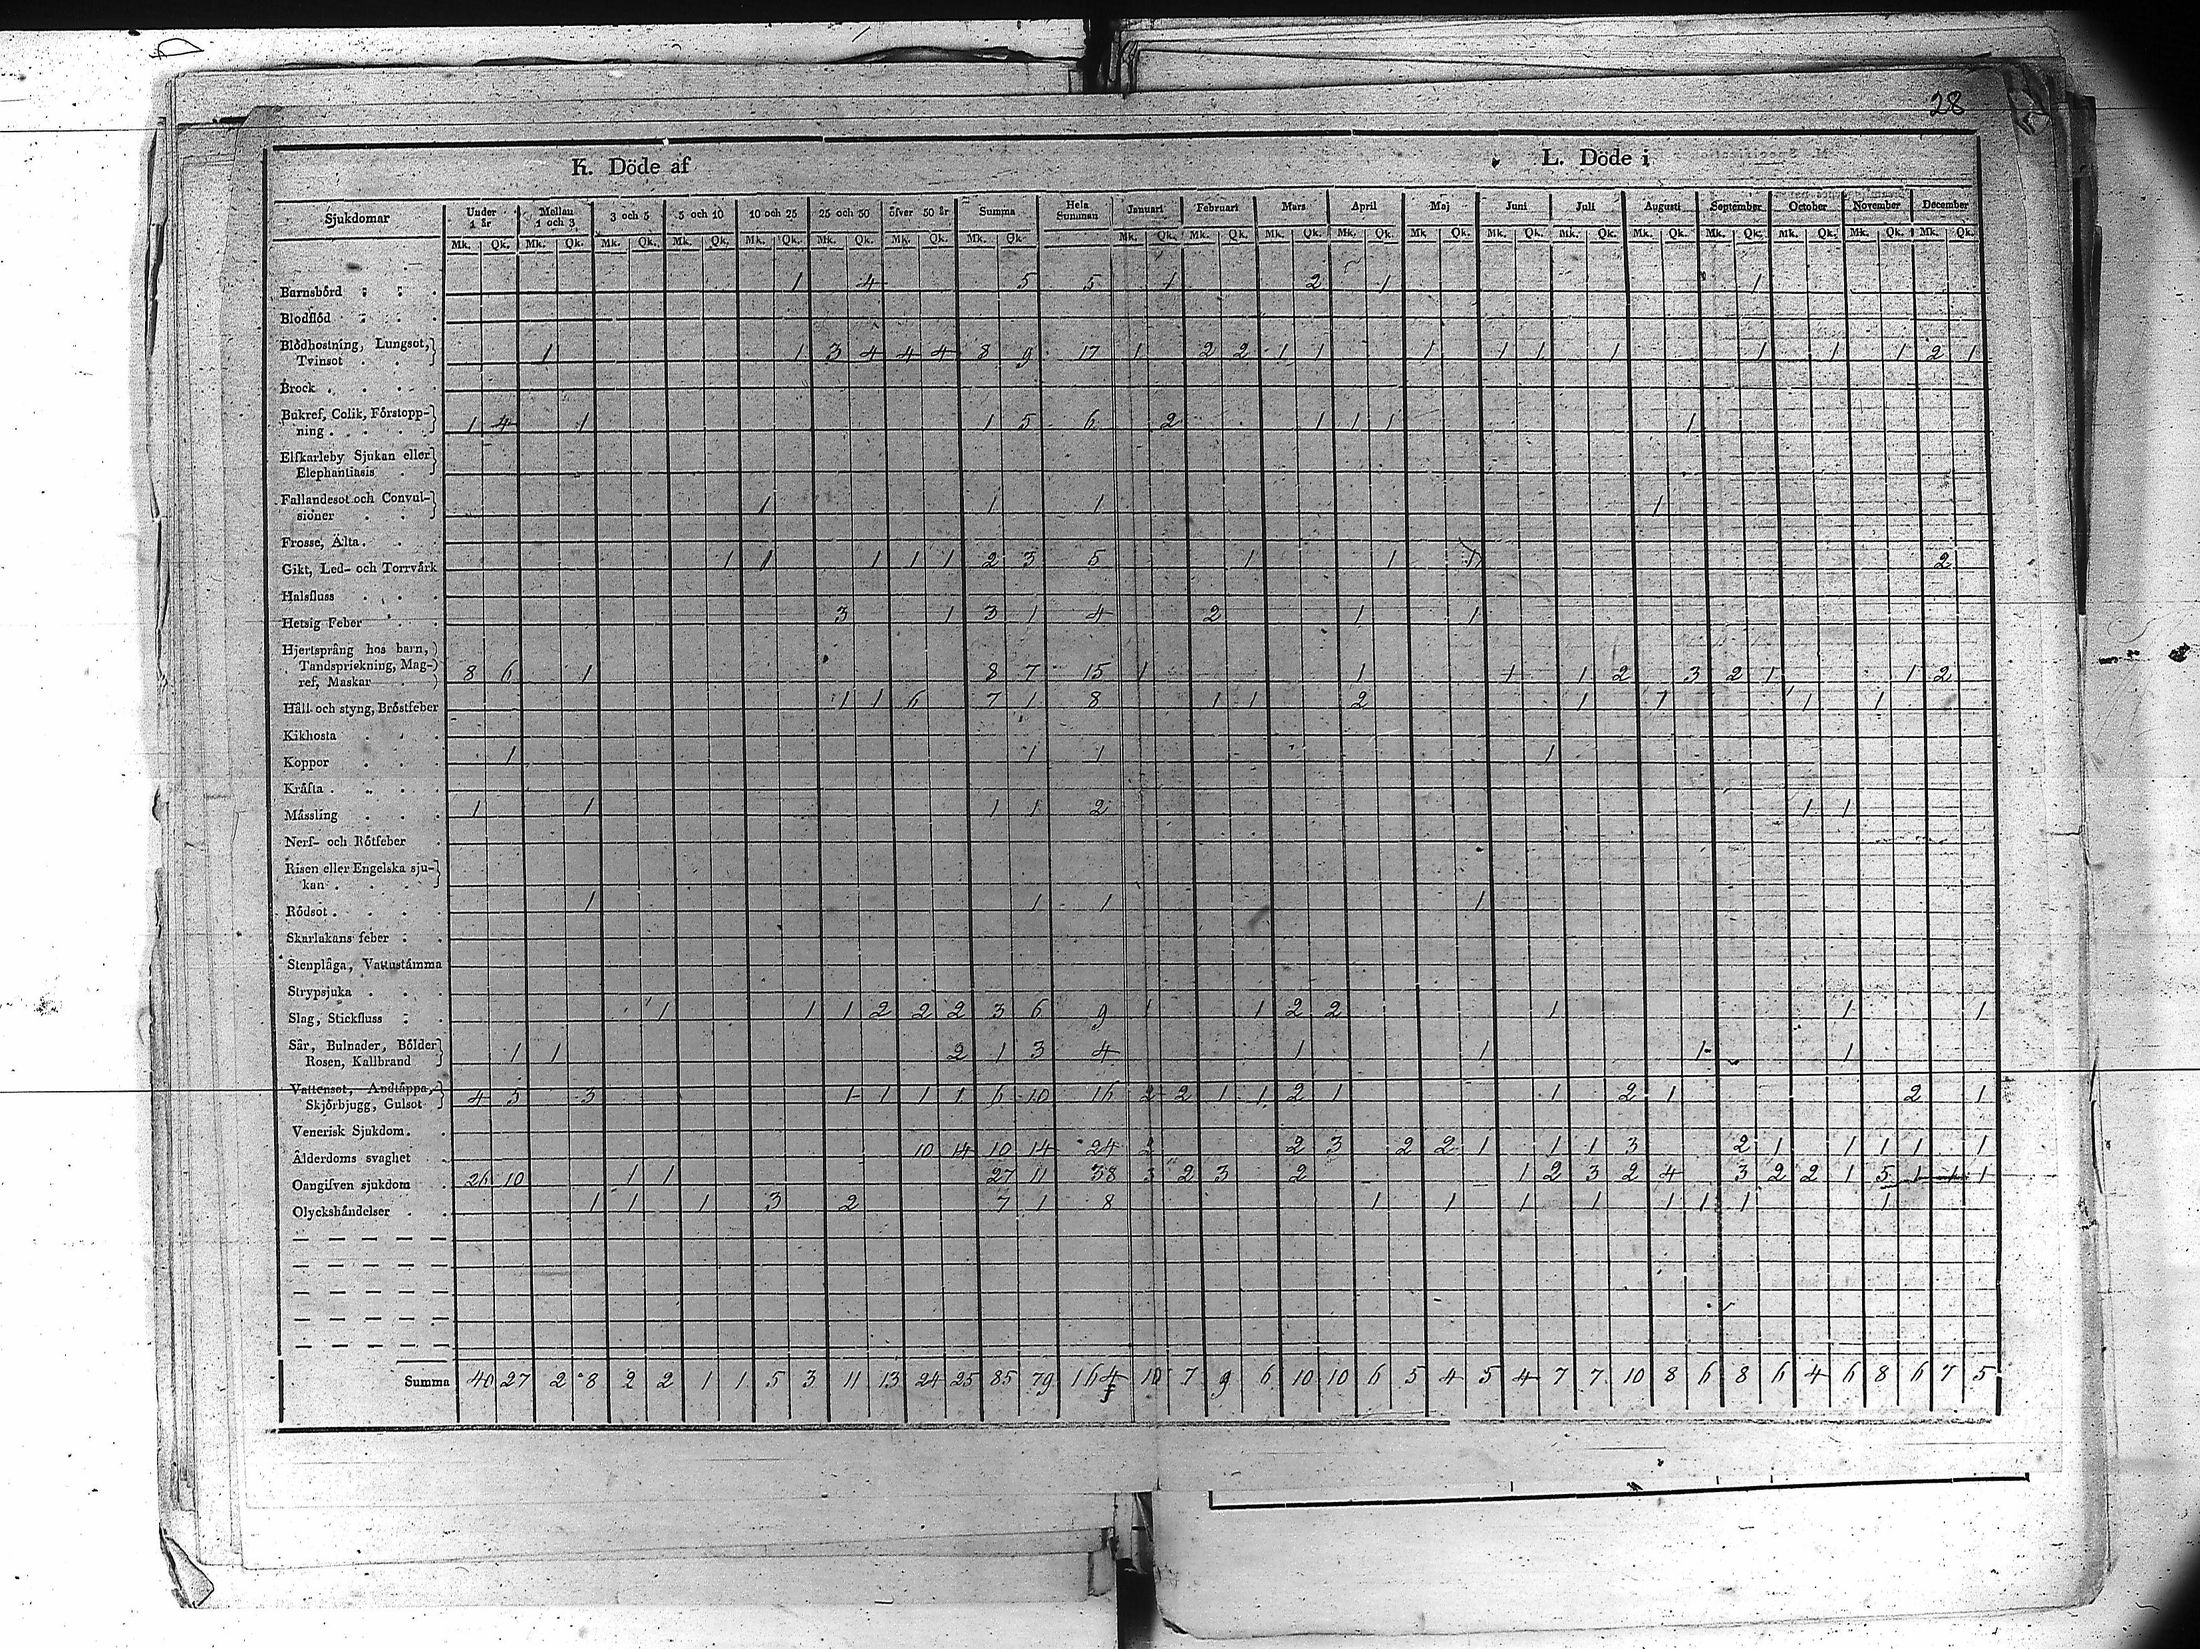 28
K. Döde af L. Döde i
Sjukdomar Under 1 år Mellan 1 och 3 3 och 5 5 och 10 10 och 25 25 och 50 öfver 50 år Summa Hela Summan Januari Februari Mars April Maj Juni Juli Augusti September October November December
Mk. Qk. Mk. Qk. Mk. Qk. Mk. Qk. Mk. Qk. Mk. Qk. Mk. Qk. Mk. Qk. Mk. Qk. Mk. Qk. Mk. Qk. Mk. Qk. Mk. Qk. Mk. Qk. Mk. Qk. Mk. Qk. Mk. Qk. Mk. Qk. Mk. Qk. Mk. Qk.
Barnsbörd 1 4 5 5 1 2 1 1
Blodflöd
Blodhostning, Lungsot,
Tvinsot 1 1 3 4 4 4 8 9 17 1 2 2 1 1 1 1 1 1 1 1 1 2 1
Brock
Bukref, Colik, Förstopp-
ning 1 4 1 1 5 6 2 1 1 1 1
Elfkarleby Sjukan eller
Elephantiasis
Fallandesot och Convul-
sioner 1 1 1 1
Frosse, Älta
Gikt, Led- och Torrvärk 1 1 1 1 1 2 3 5 1 1 1 2
Halsfluss
Hetsig Feber 3 1 3 1 4 2 1 1
Hjertsprång hos barn,
Tandspriekning, Mag-
ref, Maskar 8 6 1 8 7 15 1 1 1 1 2 3 2 1 1 2
Håll och styng, Bröstfeber 1 1 6 7 1 8 1 1 2 1 1 1 1
Kikhosta
Koppor 1 1 1 1
Kräfta
Mässling 1 1 1 1 2 1 1
Nerf- och Rötfeber
Risen eller Engelska sju-
kan
Rödsot 1 1 1 1
Skarlakans feber
Stenplåga, Vattustämma
Strypsjuka
Slag, Stickfluss 1 1 1 2 2 2 3 6 9 1 1 2 2 1 1 1
Sår, Bulnader, Bölder
Rosen, Kallbrand 1 1 2 1 3 4 1 1 1 1
Vattensot, Andtäppa,
Skjörbjugg, Gulsot 4 5 3 1 1 1 1 6 10 16 2 2 1 1 2 1 1 2 1 2 1
Venerisk Sjukdom
Ålderdoms svaghet 10 14 10 14 24 2 2 3 2 2 1 1 1 3 2 1 1 1 1 1
Oangifven sjukdom 26 10 1 1 27 11 38 3 2 3 2 1 2 3 2 4 3 2 2 1 5 1 1
Olyckshändelser 1 1 1 3 2 7 1 8 1 1 1 1 1 1 1 1
Summa 40 27 2 8 2 2 1 1 5 3 11 13 24 25 85 79 164 10 7 9 6 10 10 6 5 4 5 4 7 7 10 8 6 8 6 4 6 8 6 7 5